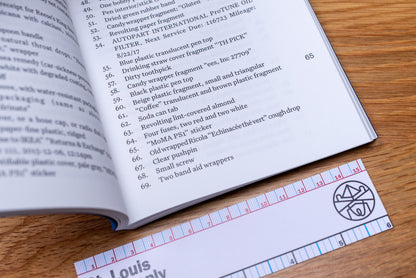 One bobby
50. Pen interior/stick
51. Dried green rubber band
52. Candy wrapper fragment: "Gluten
53. Revolting paper fragment
54. AUTOPART INTERNATIONAL ProTUNE OIL
FILTER. Next Service Due: 116752 Mileage:
8/22/17
55. Blue plastic translucent pen top
56. Drinking straw cover fragment "TH PICK"
57. Dirty toothpick
58. Candy wrapper fragment "ees, Inc 27709"
59. Black plastic pen top
60. Beige plastic fragment, small and triangular
61. "Coffee" translucent and brown plastic fragment
62. Soda can tab
63. Revolting lint-covered almond
64. Four fuses, two red and two white
65. "MoMA PS1" sticker
66. Old wrapped Ricola "Echinacée thé vert" cough drop
67. Clear pushpin
68. Small screw
69. Two band aid wrappers
65
receipt for Reese's
spoon handle
natural throat drop,"
wrapper
with degraded
with water-resistant
packaging (same
or a bone cap, or
paper-fine plastic, ridged
IKEA" "Returns & Exchange
2015, 20-12-16, 12:14pm
plastic cover, pair gray,
PS1" sticker
1 2 3 4 5 6 7 8 9 10 11 12 13 14 15
Louis
4 5 6